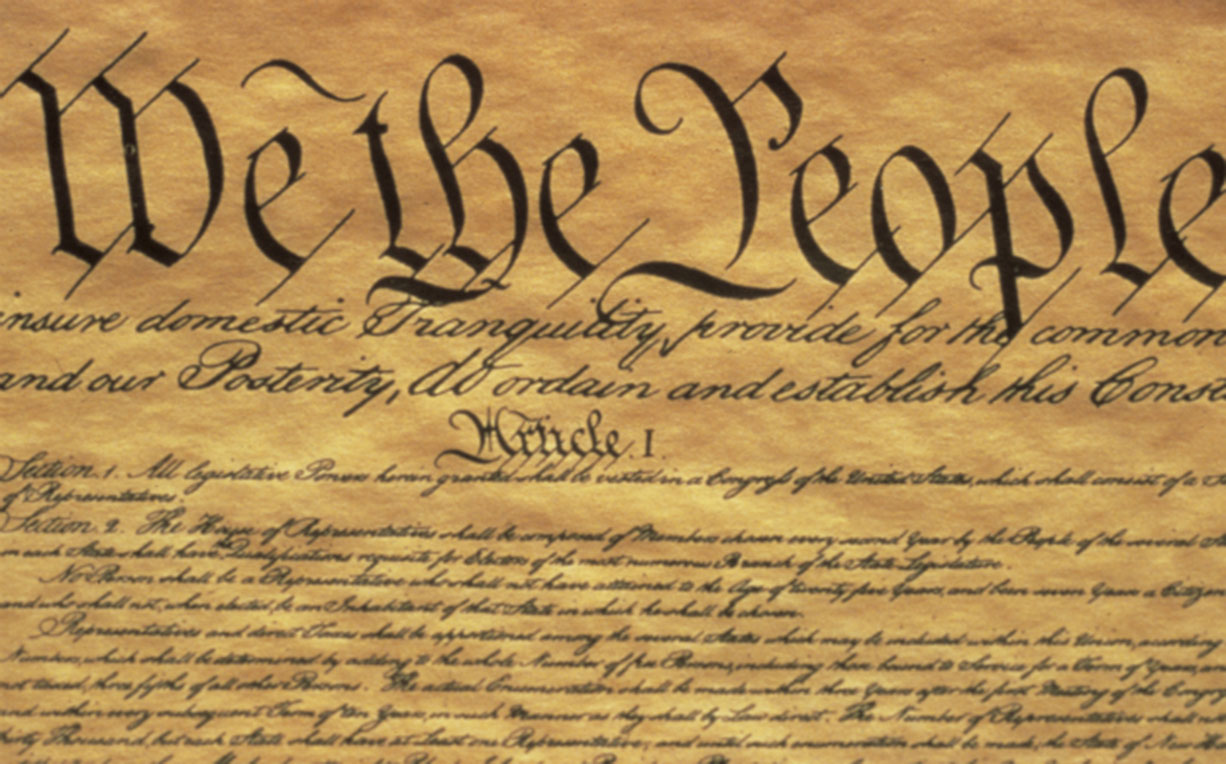 We the People
insure domestic Tranquility, provide for the common
and our Posterity, do ordain and establish this Const
Article. I.
Section. 1. All legislative Powers herein granted shall be vested in a Congress of the United States, which shall consist of a
of Representatives.
Section. 2. The House of Representatives shall be composed of Members chosen every second Year by the People of the several
in each State shall have Qualifications requisite for Electors of the most numerous Branch of the State Legislature.
No Person shall be a Representative who shall not have attained to the Age of twenty five Years, and been seven Years a Citizen
and who shall not, when elected, be an Inhabitant of that State in which he shall be chosen.
Representatives and direct Taxes shall be apportioned among the several States which may be included within this Union, according
Numbers, which shall be determined by adding to the whole Number of free Persons, including those bound to Service for a Term of Years,
not taxed, three fifths of all other Persons. The actual Enumeration shall be made within three Years after the first Meeting of the Congress
and within every subsequent Term of ten Years, in such Manner as they shall by Law direct. The Number of Representatives shall not
thirty Thousand, but each State shall have at Least one Representative; and until such enumeration shall be made, the State of New